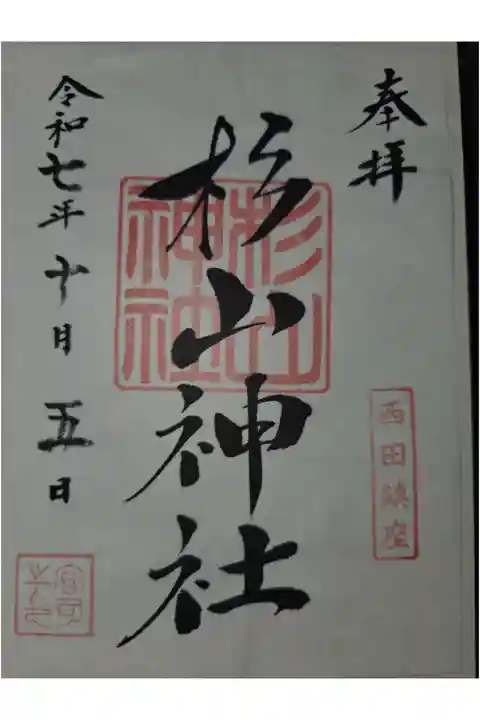 奉拝
西田鎮座
杉山神社
杉山
神社
令和七年十月五日
宮司
之印